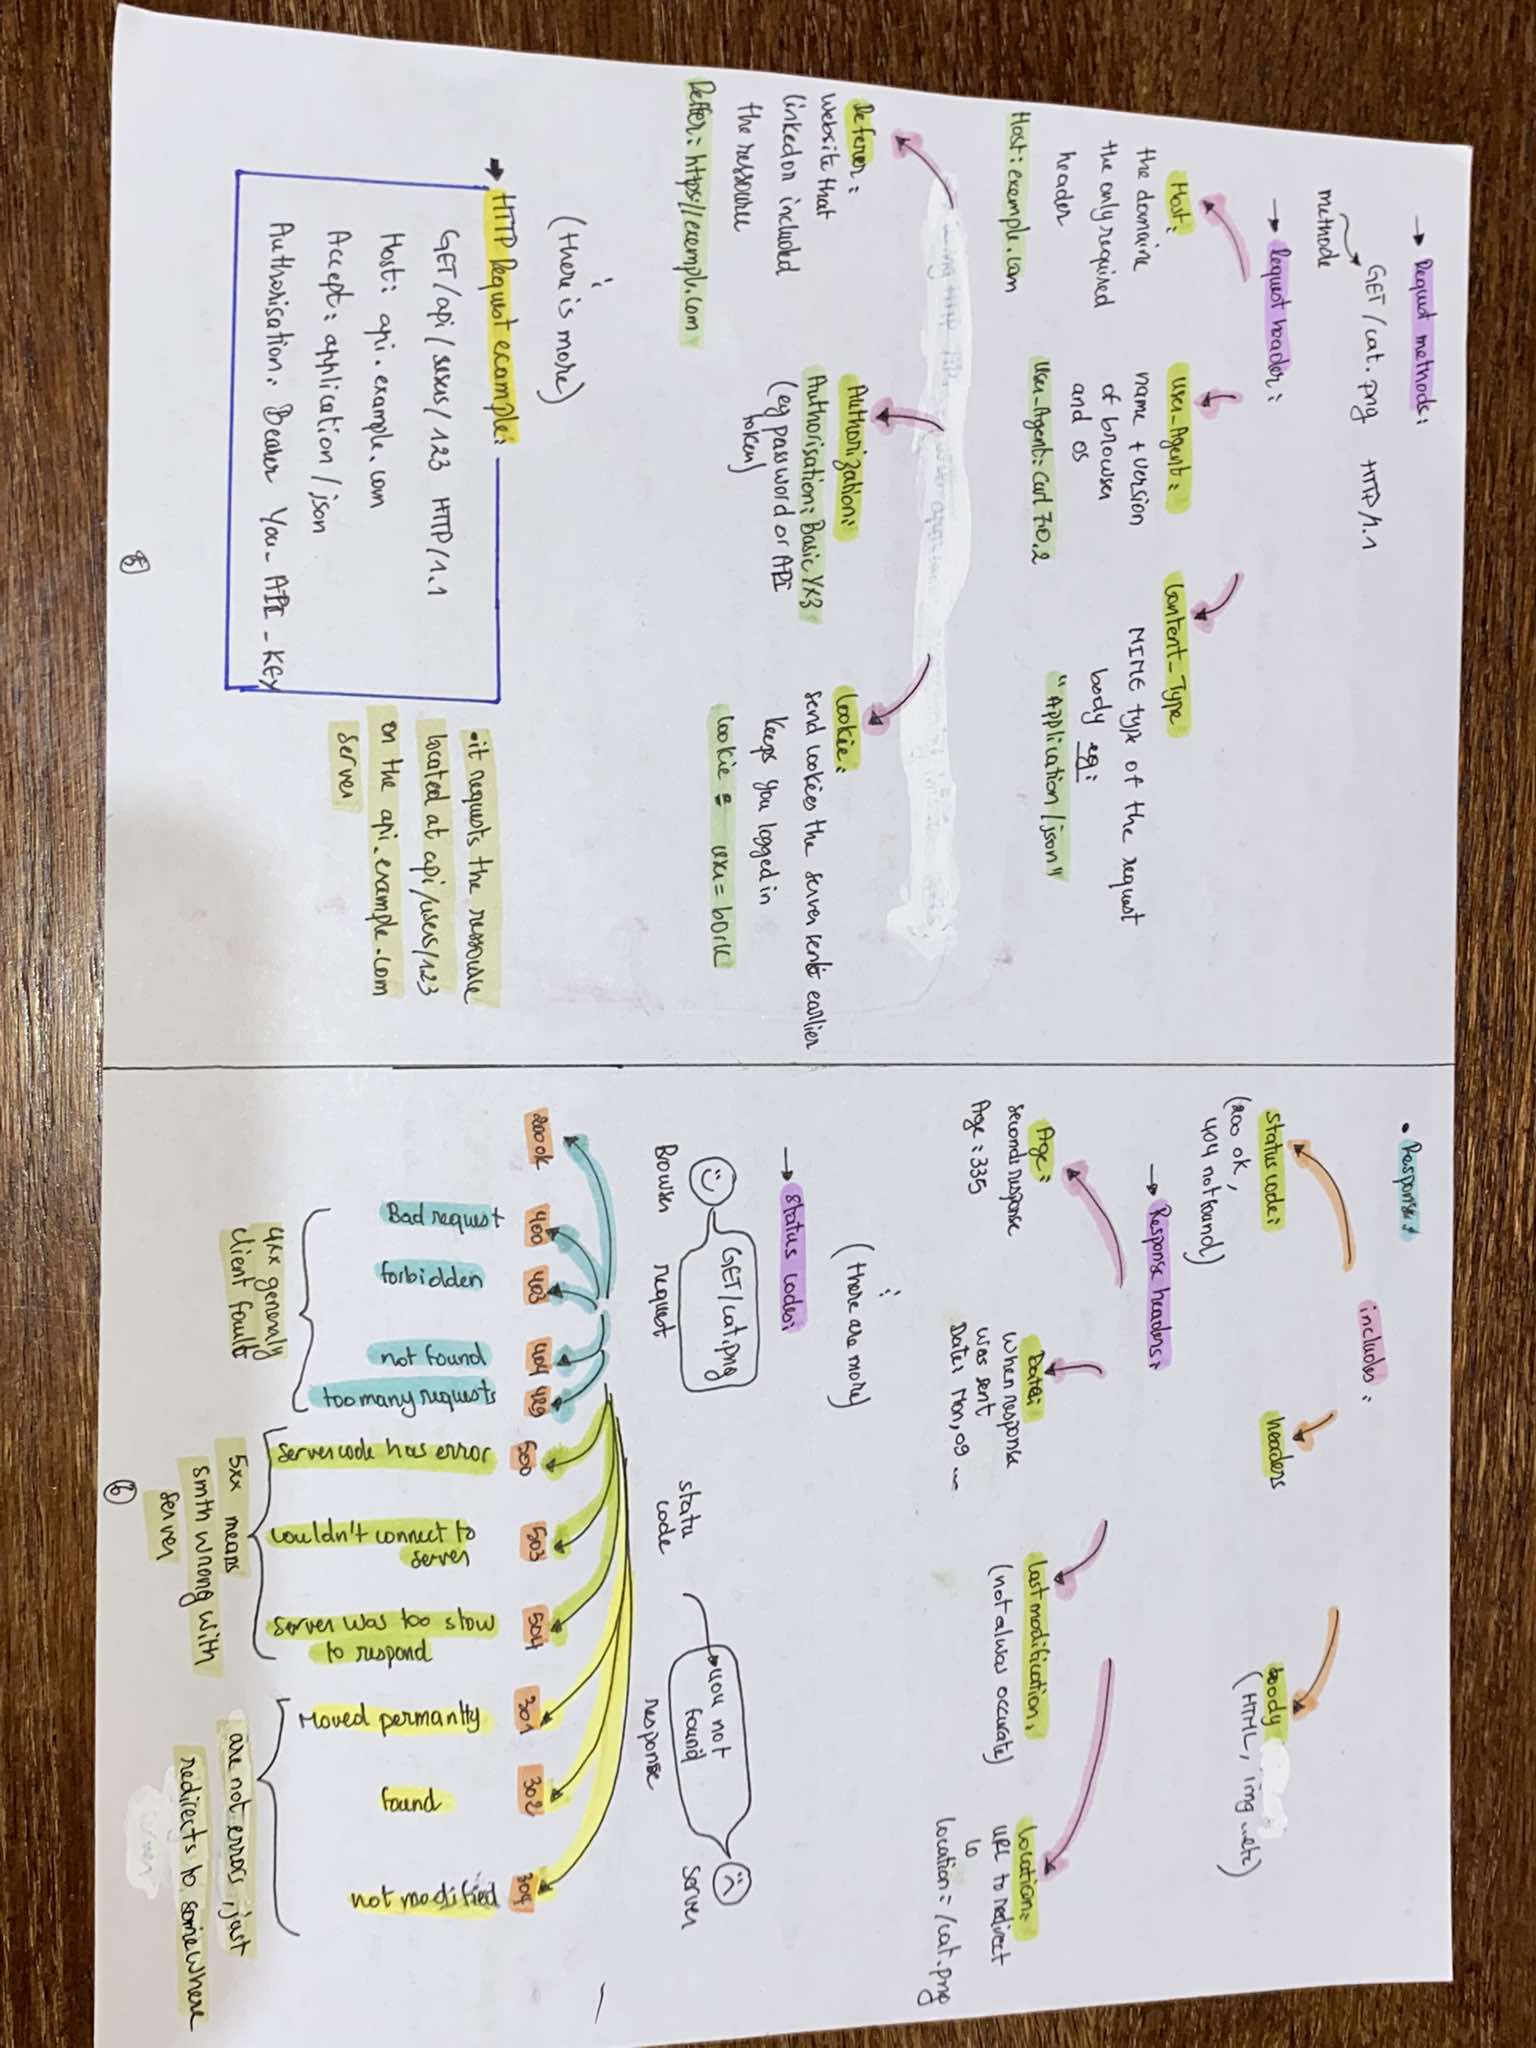 → Request methods:
GET /cat.png HTTP/1.1
methode
→ Request header:
Host:
the domaine
the only required
header
Host: exemple.com
User_Agent:
name + version
of browser
and OS
User_Agent: Curl 7.0.2
Content_Type
MIME type of the request
body eg:
"Application/json"
Deferer:
website that
linked or included
the ressource
Deffer: https://exemple.com
Authorization:
Authorisation: Basic YX3
(eg password or API
token)
Cookie:
send cookies the server sent earlier
Keeps you logged in
:
(there is more)
→ HTTP Request example:
GET/api/ /123 HTTP/1.1
Host: api.example.com
Accept: application/json
Authorisation: Bearer You_API_KEY
• it requests the ressource
located at api/users/123
on the api.example.com
server
5
• Response:
includes:
Status code:
(200 ok,
404 not found)
headers
body
(HTML, img ..etc)
→ Response headers:
Age:
seconds response
Age: 335
Date:
When response
was sent
Date: Mon, 09 ...
last modification:
(not alwas occurate)
Location:
URL to redirect
to
location = /cat.png
:
(there are more)
→ Status codes:
GET/cat.png
Browser
request
statu
code
404 not
found
response
server
200 ok
400
403
404
429
500
503
504
301
302
304
Bad request
forbidden
not found
too many requests
server code has error
couldn't connect to
server
server was too slow
to respond
Moved permantly
found
not modified
4xx generaly
client fault
5xx means
smth wrong with
server
are not errors, just
redirects to somewhere
6